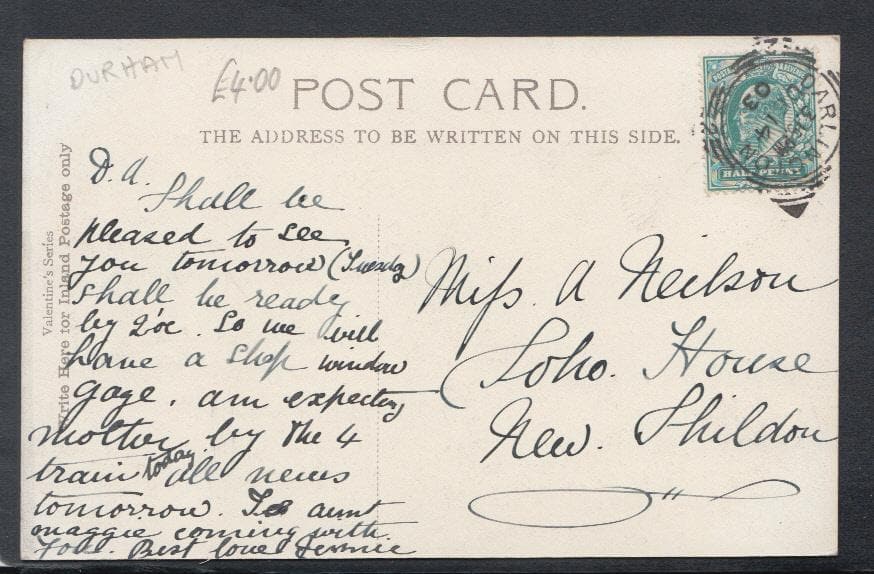 DURHAM
£4.00
POST CARD.
THE ADDRESS TO BE WRITTEN ON THIS SIDE.
POSTAGE & REVENUE
HALF PENNY
DARLINGTON
DE 14
03
Valentine's Series
Write Here for Inland Postage only
D. A.
Shall be
pleased to see
you tomorrow (Tuesday)
Shall be ready
by 2 oc. So we will
have a shop window
gage. am expecting
mother by the 4
train today all news
tomorrow. Is aunt
maggie coming with
you. Best love
Miss. A Neilson
Soho. House
New. Shildon